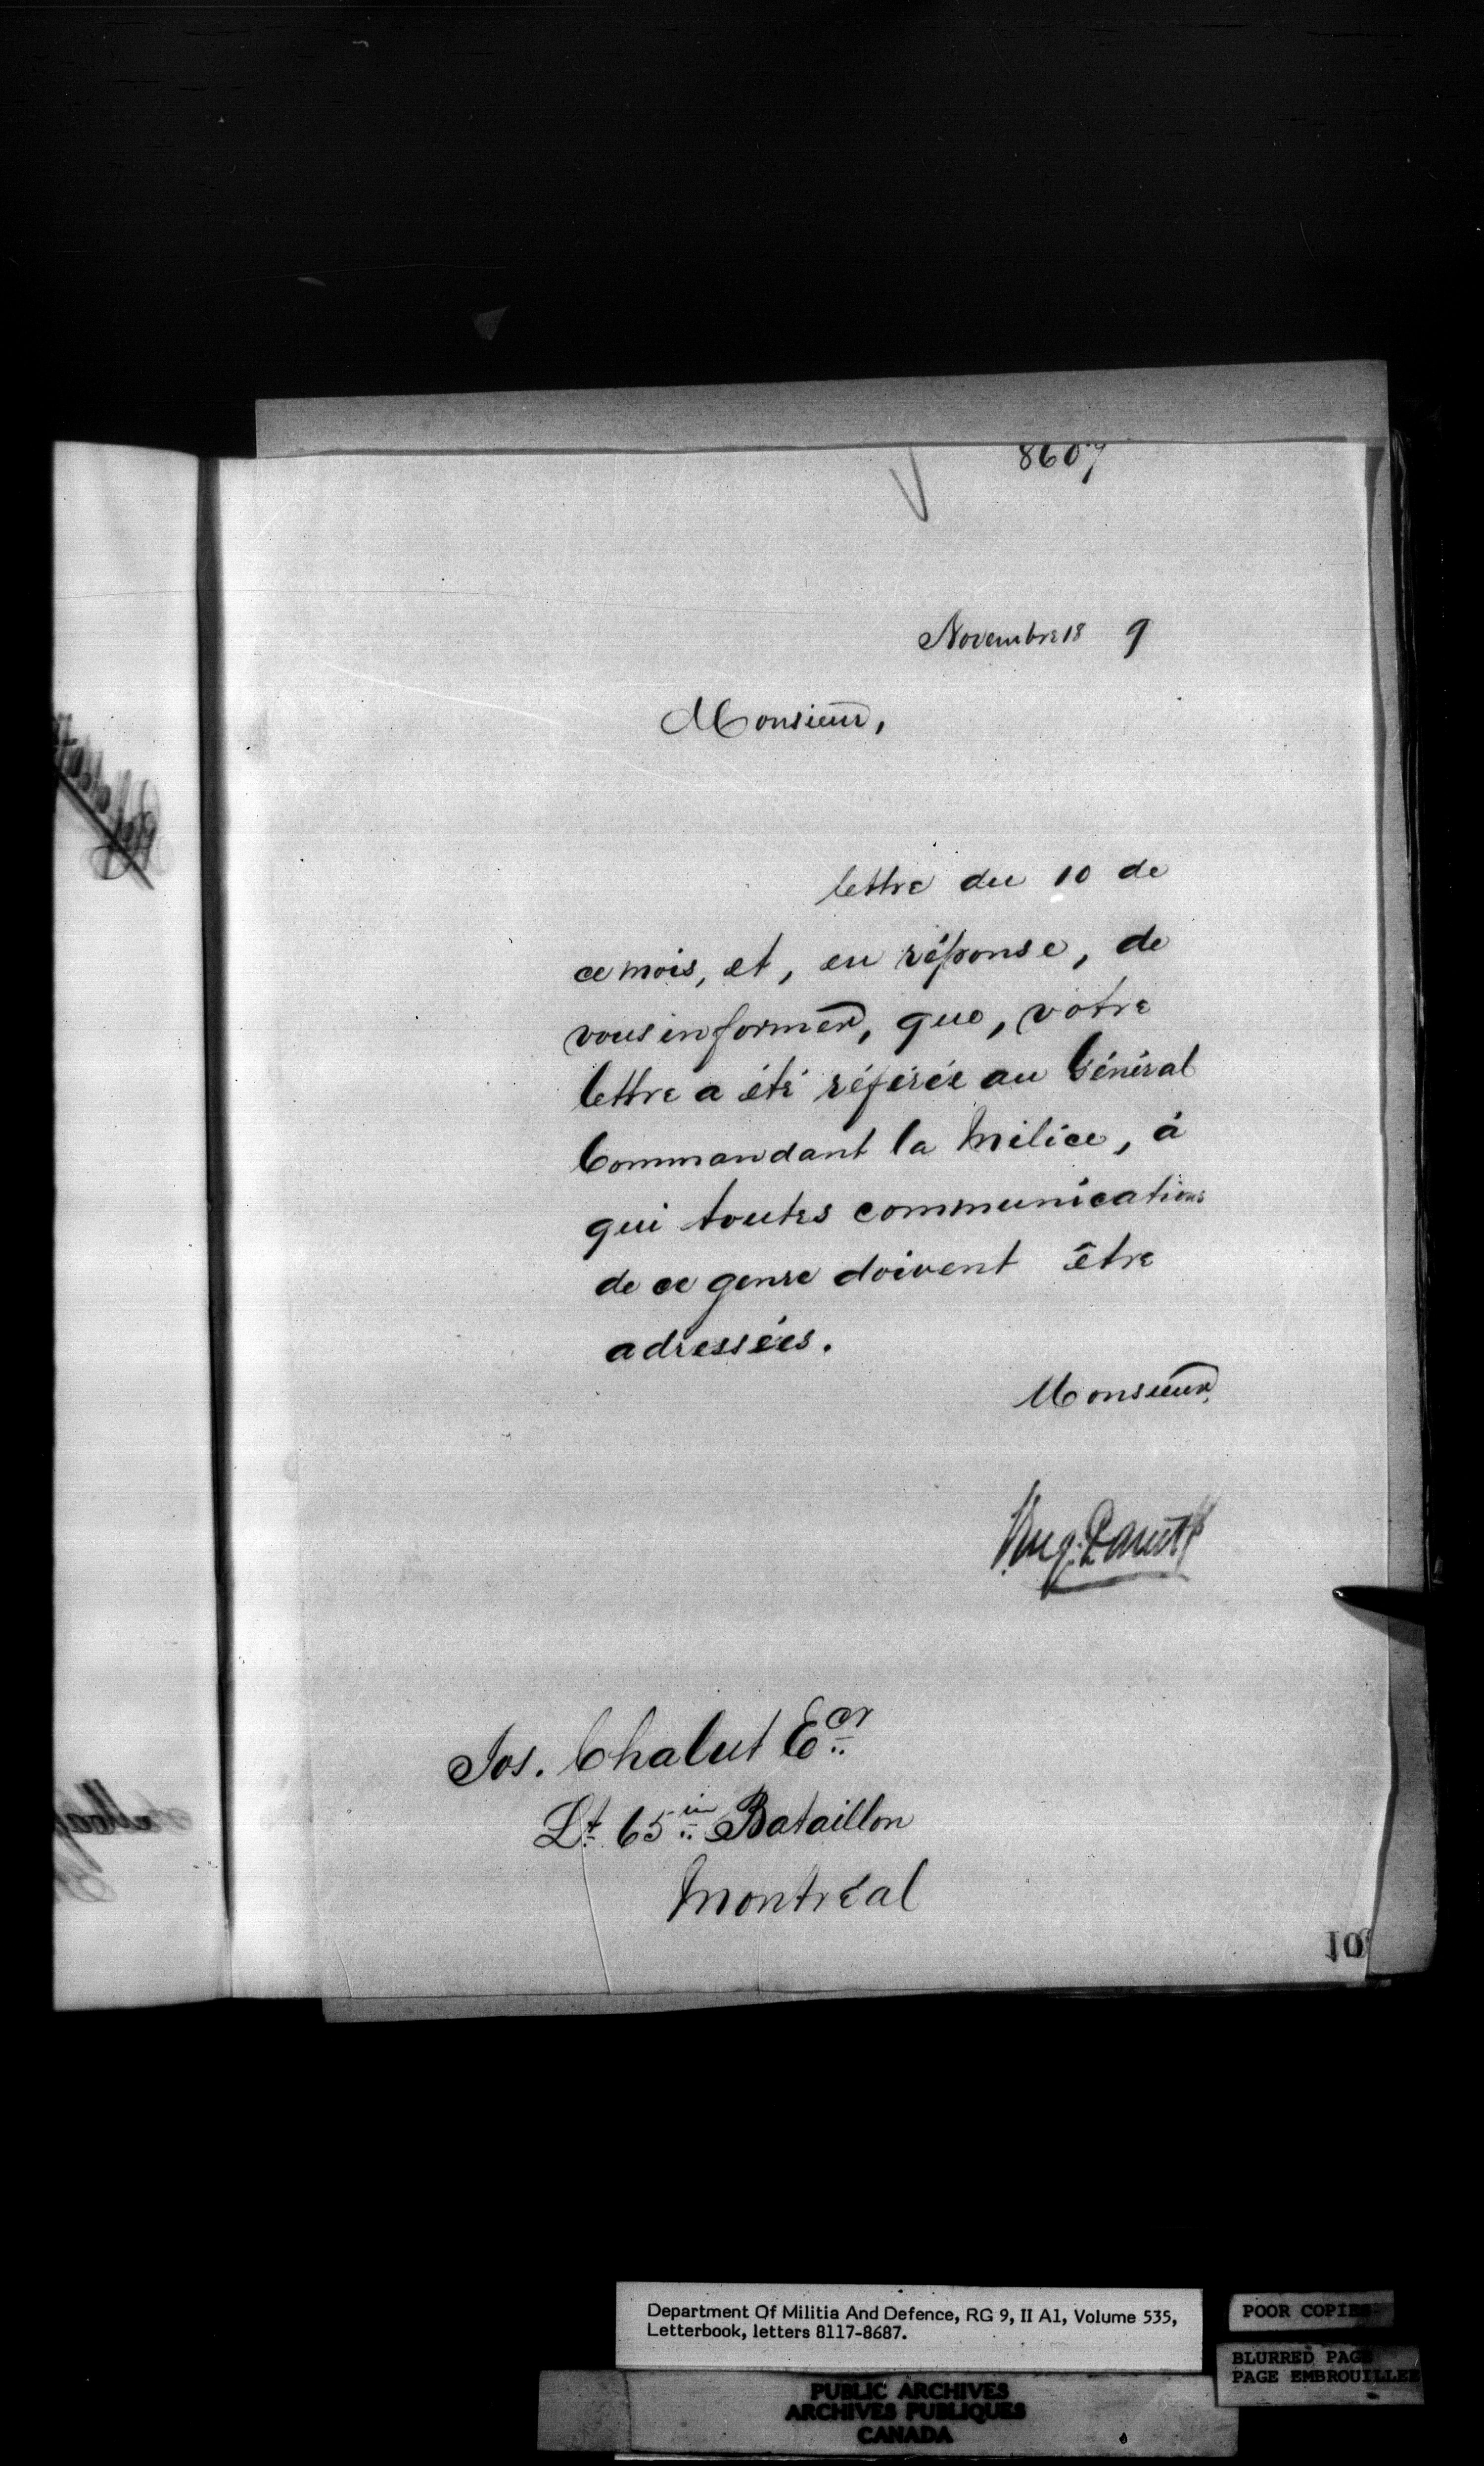 8607
Novembre 18 9
Monsieur,
lettre du 10 de
ce mois, et, en réponse, de
vous informer, que, votre
lettre a été référée au Général
Commandant la Milice, à
qui toutes communications
de ce genre doivent être
adressées.
Monsieur,
Jos. Chalut Ecr
Lt 65in Bataillon
Montréal
Department Of Militia And Defence, RG 9, II A1, Volume 535,
Letterbook, letters 8117-8687.
POOR COPIES
BLURRED PAGE
PAGE EMBROUILLEE
PUBLIC ARCHIVES
ARCHIVES PUBLIQUES
CANADA